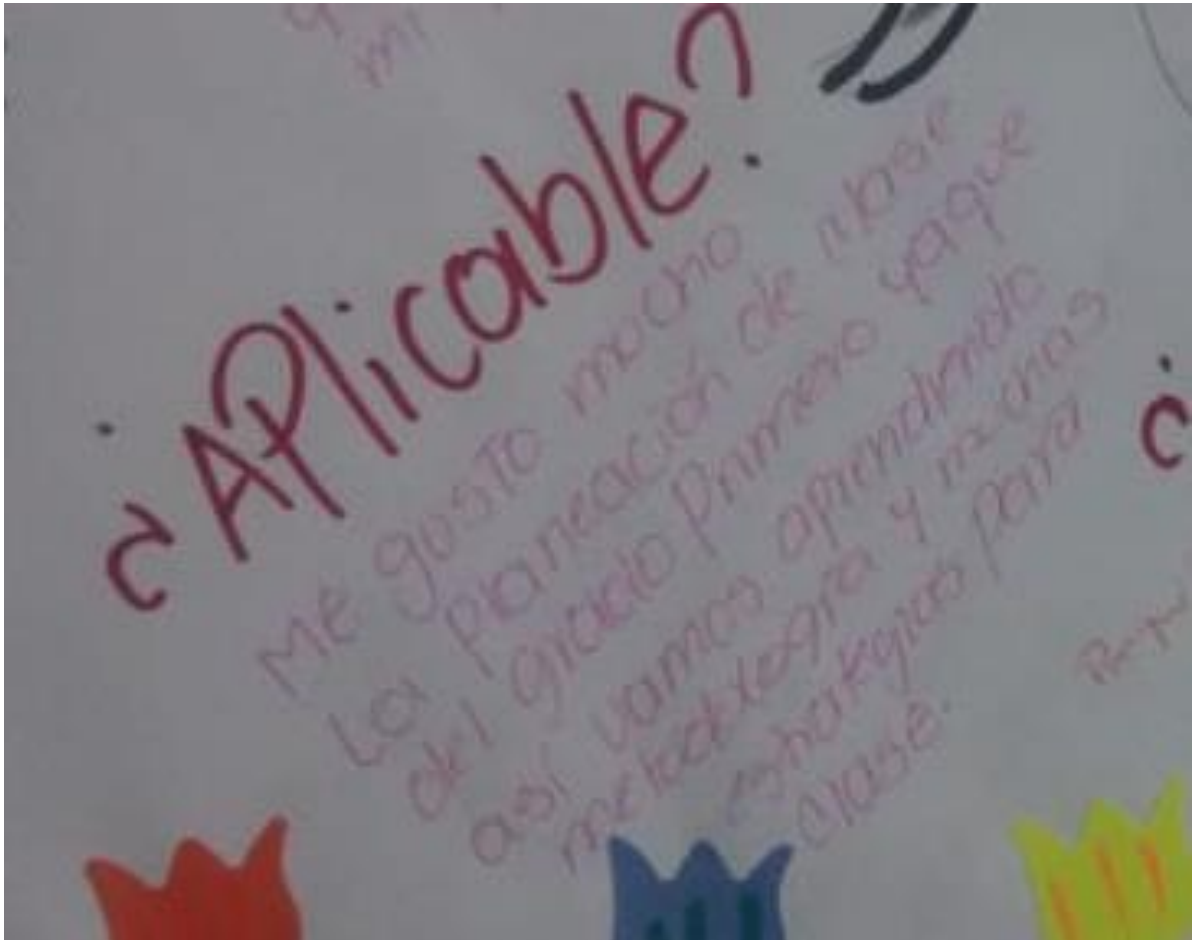 mi
¿APlicable?
ME gusto mucho
La Planeación de clase
del Grado primero yaque
así vamos aprendiendo
metodología y mas
estrategias para
clase.
¿